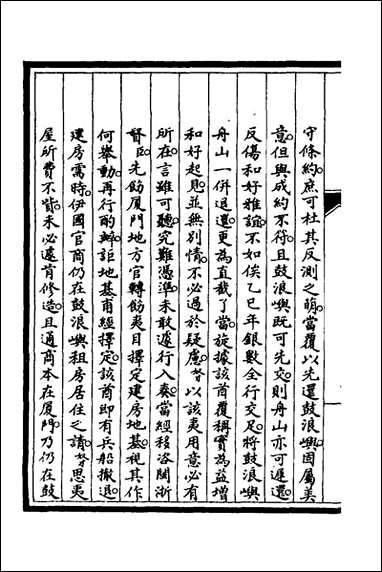 守條約。庶可杜其反測之萌。當覆以先還鼓浪嶼。固屬美
意。但與成約不符。且鼓浪嶼既可先交。則舟山亦可遲還。
反傷和好雅誼。不如俟乙巳年銀數全行交足。將鼓浪嶼
舟山一併退還。更為直截了當。旋據該酋覆稱。實為益增
和好起見。並無別情。不必過於疑慮。督以該夷用意必有
所在。言雖可聽。究難憑準。未敢遽行入奏。當經移咨閩浙
督臣。先飭厦門地方官轉飭夷目擇定建房地基。視其作
何舉動。再行酌辦。詎地基甫經擇定。該酋即有兵船撤退。
建房需時。伊國官商仍在鼓浪嶼租房居住之請。督思夷
屋所費不貲。未必遽肯修造。且通商本在厦門。乃仍在鼓